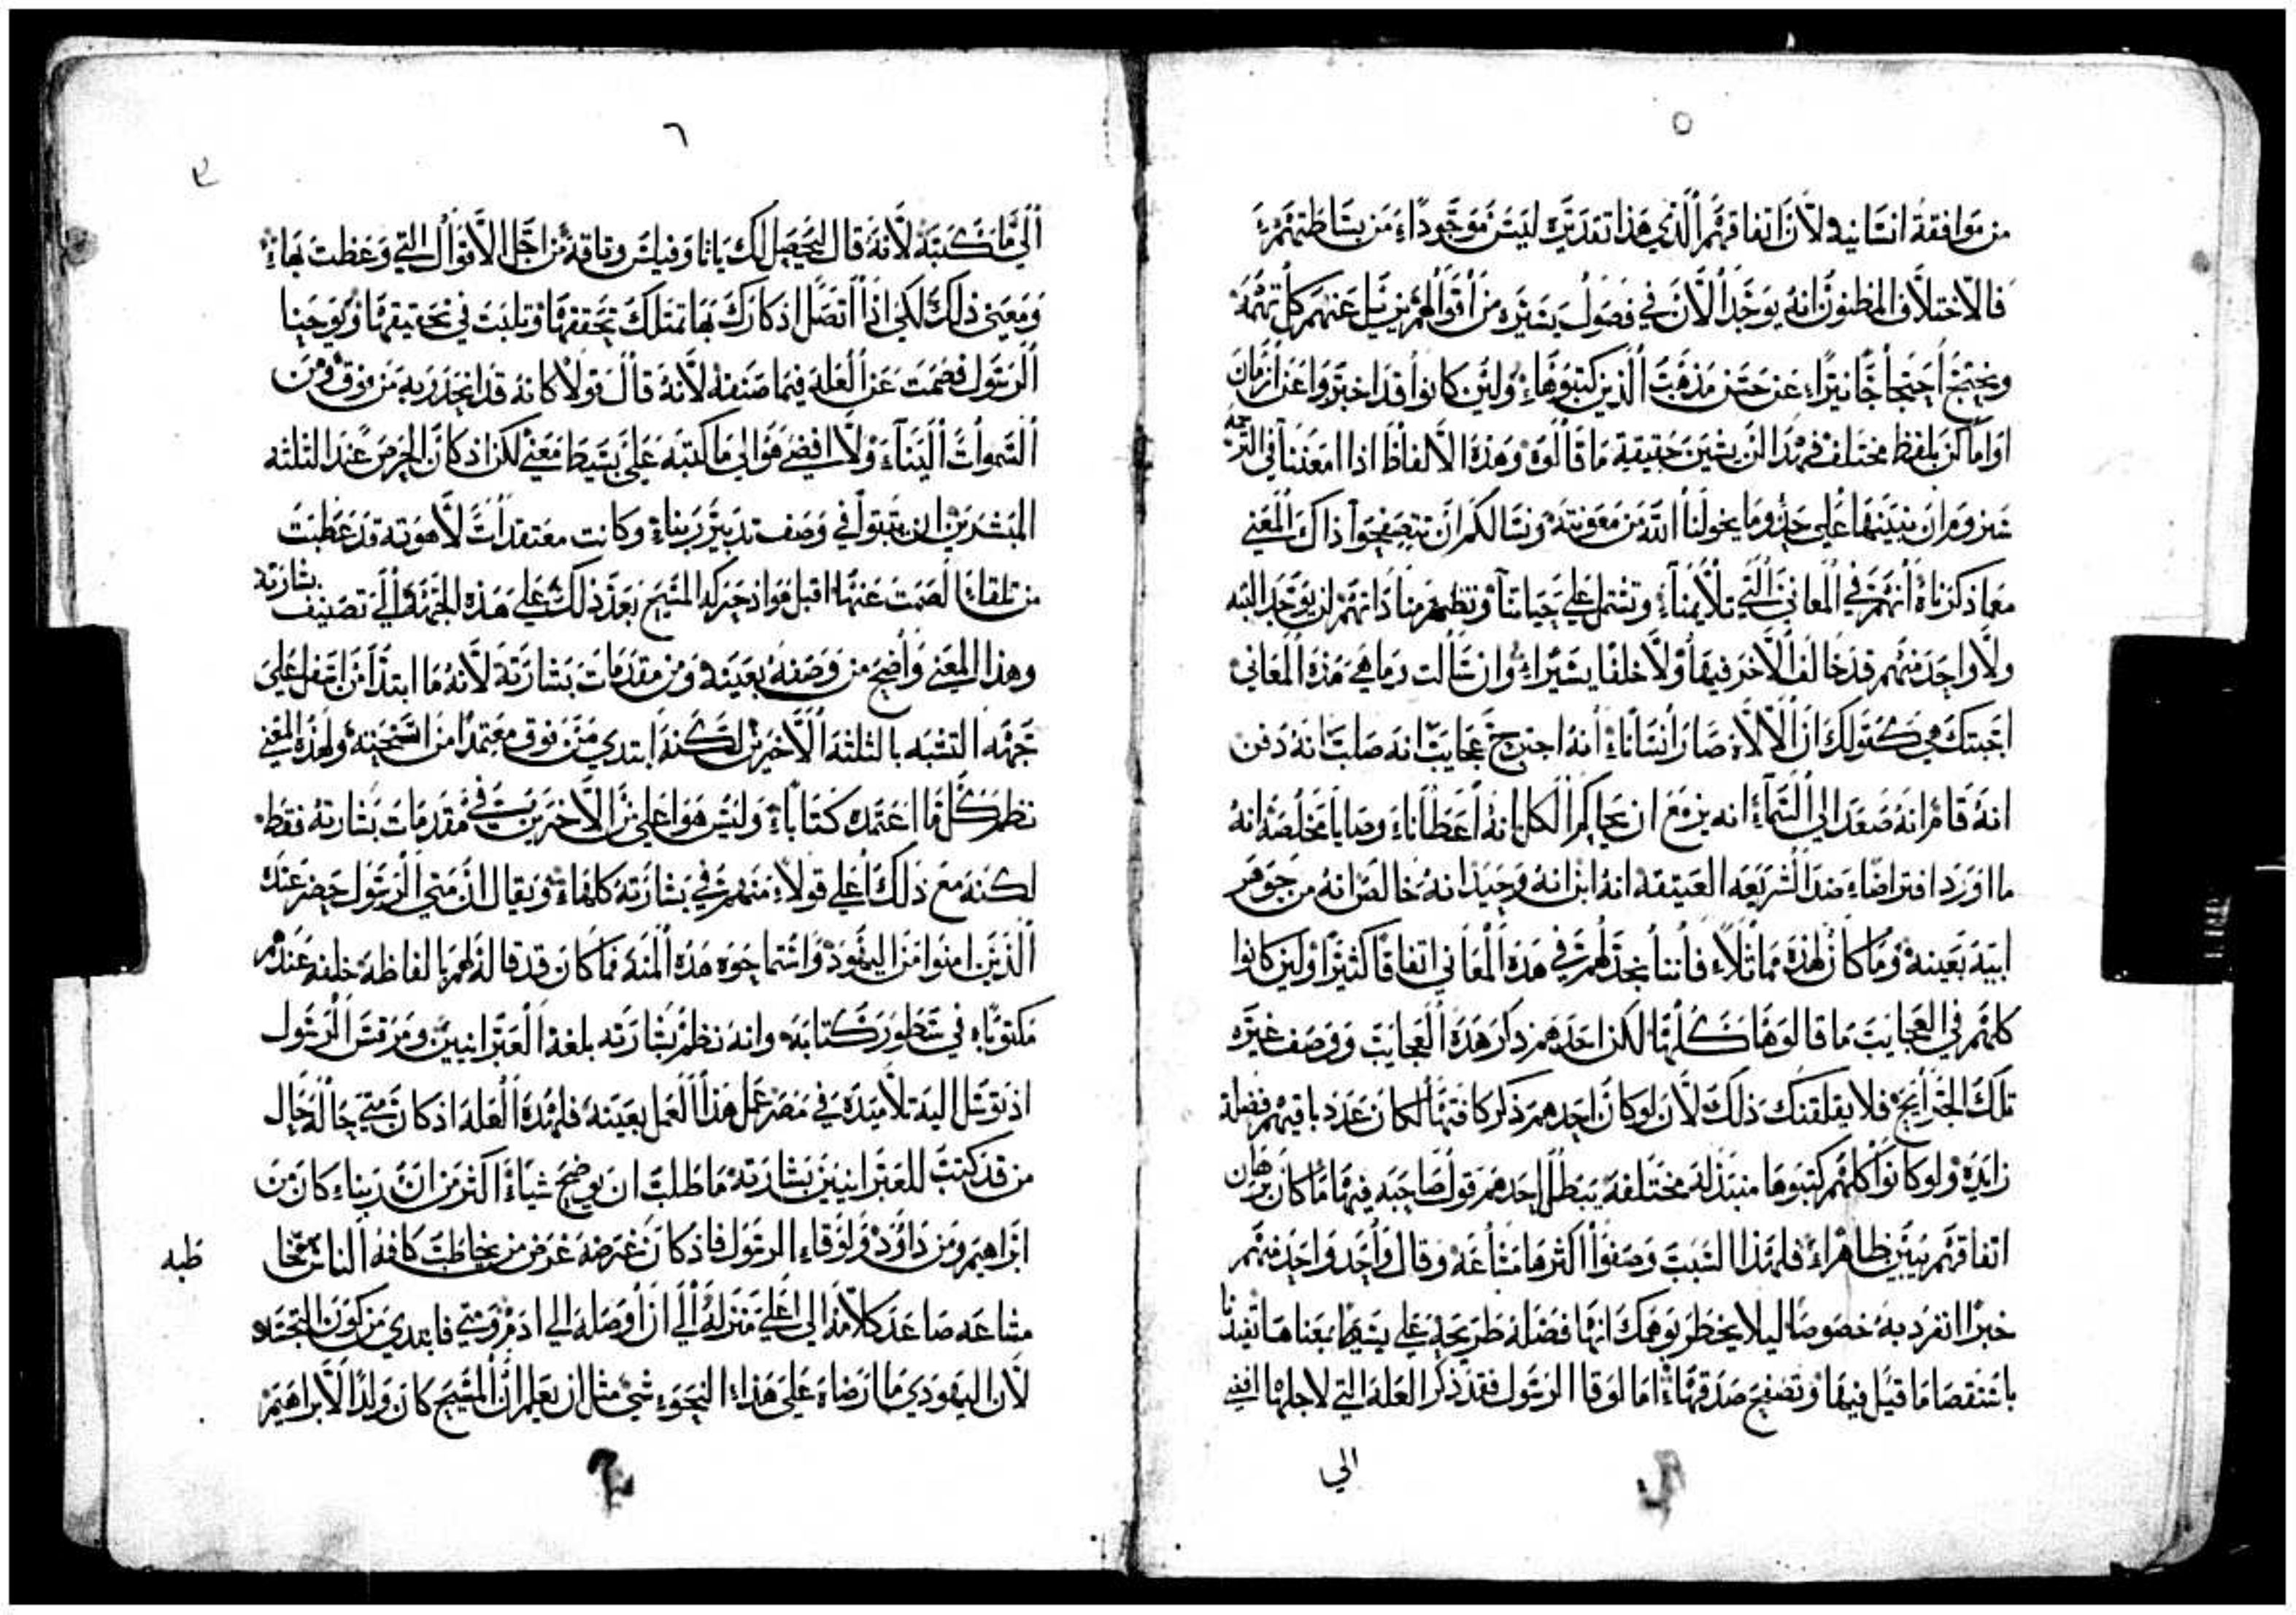 ٥
من موافقة انسانيه لان اتفاقهم الذي هذا تقديره ليس موجودا من بساطتهم
فالاختلاف المظنون انه يوجد الان في فصول يسيره من اقوالهم يزيل عنهم كل تهمة
ويحتج احتجاجا نيرا عن حسن مذهب الذين كتبوها ولين كانوا قد اخبروا عن ازمان
او اماكن بلفظ مختلف فهذا لن يشين حقيقة ما قالوه وهذه الالفاظ اذا امعننا في الترجمه
سنروم ان نبينها علي حذو ما يخولنا الله من معونته ونسالكم ان تتصفحوا ذاك المعني
معما ذكرناه انهم في المعاني التي تلايمنا وتشتمل علي حياتنا وتظهر منا ذاتهم لن يوجد البته
ولا واحد منهم قد خالف الاخر فيها ولا خلفا يسيرا وان سالت وما هي هذه المعاني
اجبتك هي كقولك ان الالاه صار انسانا انه اجترح عجايب انه صلب انه دفن
انه قام انه صعد الي السماء انه يزمع ان يحاكم الكل انه اعطانا وصايا مخلصه انه
ما اورد افتراضا ضد الشريعه العتيقه انه ابن انه وحيد انه خالص انه من جوهر
ابيه بعينه وما كان لهذه مماثلا فاننا نجد لهم في هذه المعاني اتفاقا كثيرا ولين كانوا
كلهم في العجايب ما قالوها كلها لكن احدهم ذكر هذه العجايب ووصف غيره
تلك الجرايح فلا يقلقنك ذلك لان لو كان احدهم ذكر كافتها لكان عدد باقيهم فضله
زايده ولو كانوا كلهم كتبوها منبتدله مختلفه يبطل احدهم قول صاحبه فيها ما كان برهان
اتفاقهم يبين ظاهرا فلهذا السبب وصفوا اكثرها مشاعه وقال واحد واحد منهم
خبرا انفرد به خصوصا ليلا يخطر بوهمك انها فضله طريحه علي بسيط معناها تفيدنا
باستقصا ما قيل فيها وتصفح صدقها اما لوقا الرسول فقد ذكر العله التي لاجلها افضي
الي
٦
٣
الي ما كتبه لانه قال ليحصل لك ياثاوفيلس وثاقة من اجل الاقوال التي وعظت بها
ومعني ذلك لكي اذا اتصل اذكارك بها تمتلك تحققها وتلبث في تحقيقها ويوحنا
الرسول فصمت عن العله فيما صنفه لانه قال قولا كانه قد انحدر به من فوق ومن
السموات الينا ولا افضي هو الي ما كتبه علي بسيط معني لكن اذ كان الحرص عند الثلثه
المبشرين ان يثبتوا في وصف تدبير ربنا وكانت معتقدات لاهوته قد عطبت
من تلقا الصمت عنها اقبل هو اذ حركه المسيح بعد ذلك علي هذه الجهة الي تصنيف بشارته
وهذا المعني واضح من وصفه بعينه ومن مقدمات بشارته لانه ما ابتدا من اسفل علي
جهه التشبه بالثلثه الاخرين لكنه ابتدي من فوق معتمدا من استجته ولهذا المعني
نظم كل ما اعتمده كتابا وليس هو اعلي من الاخرين في مقدمات بشارته فقط
لكنه مع ذلك اعلي قولا منهم في بشارته كلها ويقال ان متي الرسول حضر عنده
الذين امنوا من اليهود واستماحوه هذه المنه فما كان قد قاله لهم بالفاظه خلفه عندهم
مكتوبا في سطور كتابه وانه نظم بشارته بلغة العبرانيين ومرقس الرسول
اذ توسل اليه تلاميذه في مصر عمل هذا العمل بعينه فلهذه العله اذ كان متي حاله حال
من قد كتب للعبرانيين بشارته ما طلب ان يوضح شيا اكثر من ان ربنا كان من
ابراهيم ومن داوود ولوقا الرسول فاذ كان غرضه غرض من يخاطب كافة الناس مخا
طبه
مشاعه صاعد كلامه الي اعلي منزلة الي ان اوصله الي ادم ومتي فابتدي من كون التجسد
لان اليهودي ما ارضاه علي هذا النحو شي مثل ان يعلم ان المسيح كان ولدا لابراهيم